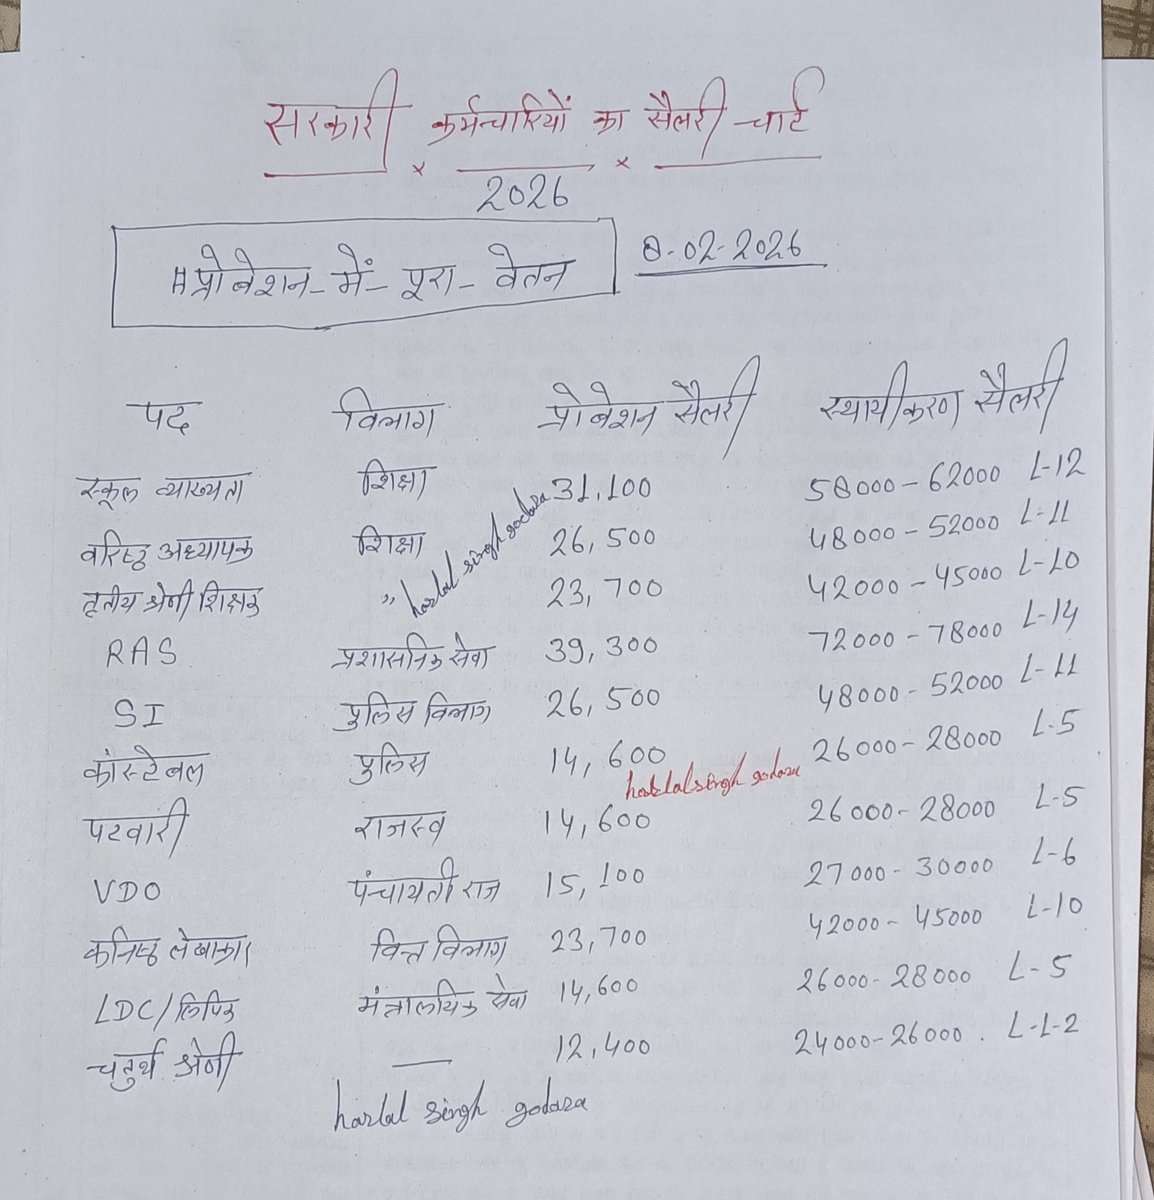 सरकारी कर्मचारियों का सैलरी चार्ट
2026
#प्रोबेशन-में-पूरा-वेतन
8-02-2026
पद विभाग प्रोबेशन सैलरी स्थायीकरण सैलरी
स्कूल व्याख्यता शिक्षा 31,100 58000-62000 L-12
वरिष्ठ अध्यापक शिक्षा 26,500 48000-52000 L-11
तृतीय श्रेणी शिक्षक " 23,700 42000-45000 L-10
harlal singh godara
RAS प्रशासनिक सेवा 39,300 72000-78000 L-14
SI पुलिस विभाग 26,500 48000-52000 L-11
कांस्टेबल पुलिस 14,600 26000-28000 L-5
harlal singh godara
पटवारी राजस्व 14,600 26000-28000 L-5
VDO पंचायती राज 15,100 27000-30000 L-6
कनिष्ठ लेखाकार 23,700 वित्त विभाग 42000-45000 L-10
LDC/लिपिक मंत्रालयिक सेवा 14,600 26000-28000 L-5
चतुर्थ श्रेणी — 12,400 24000-26000 L-1-2
harlal singh godara